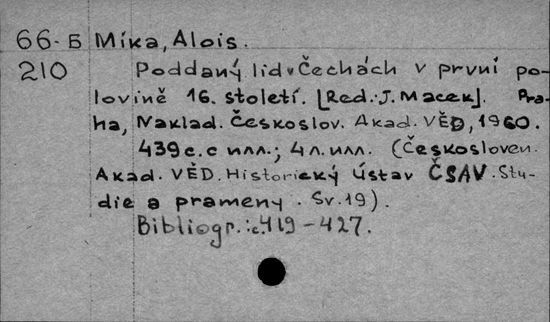 66-Б Míka, Alois.
210 Poddaný lid v Čechách v první po-
lovině 16. století. [Red. J. Macek]. Pra-
ha, Naklad. Českoslov. Akad. VĚD, 1960.
439 с. с илл.; 4 л. илл. (Českosloven.
Akad. VĚD. Historický ústav ČSAV. Stu-
die a prameny. Sv. 19).
Bibliogr.: с. 419-427.